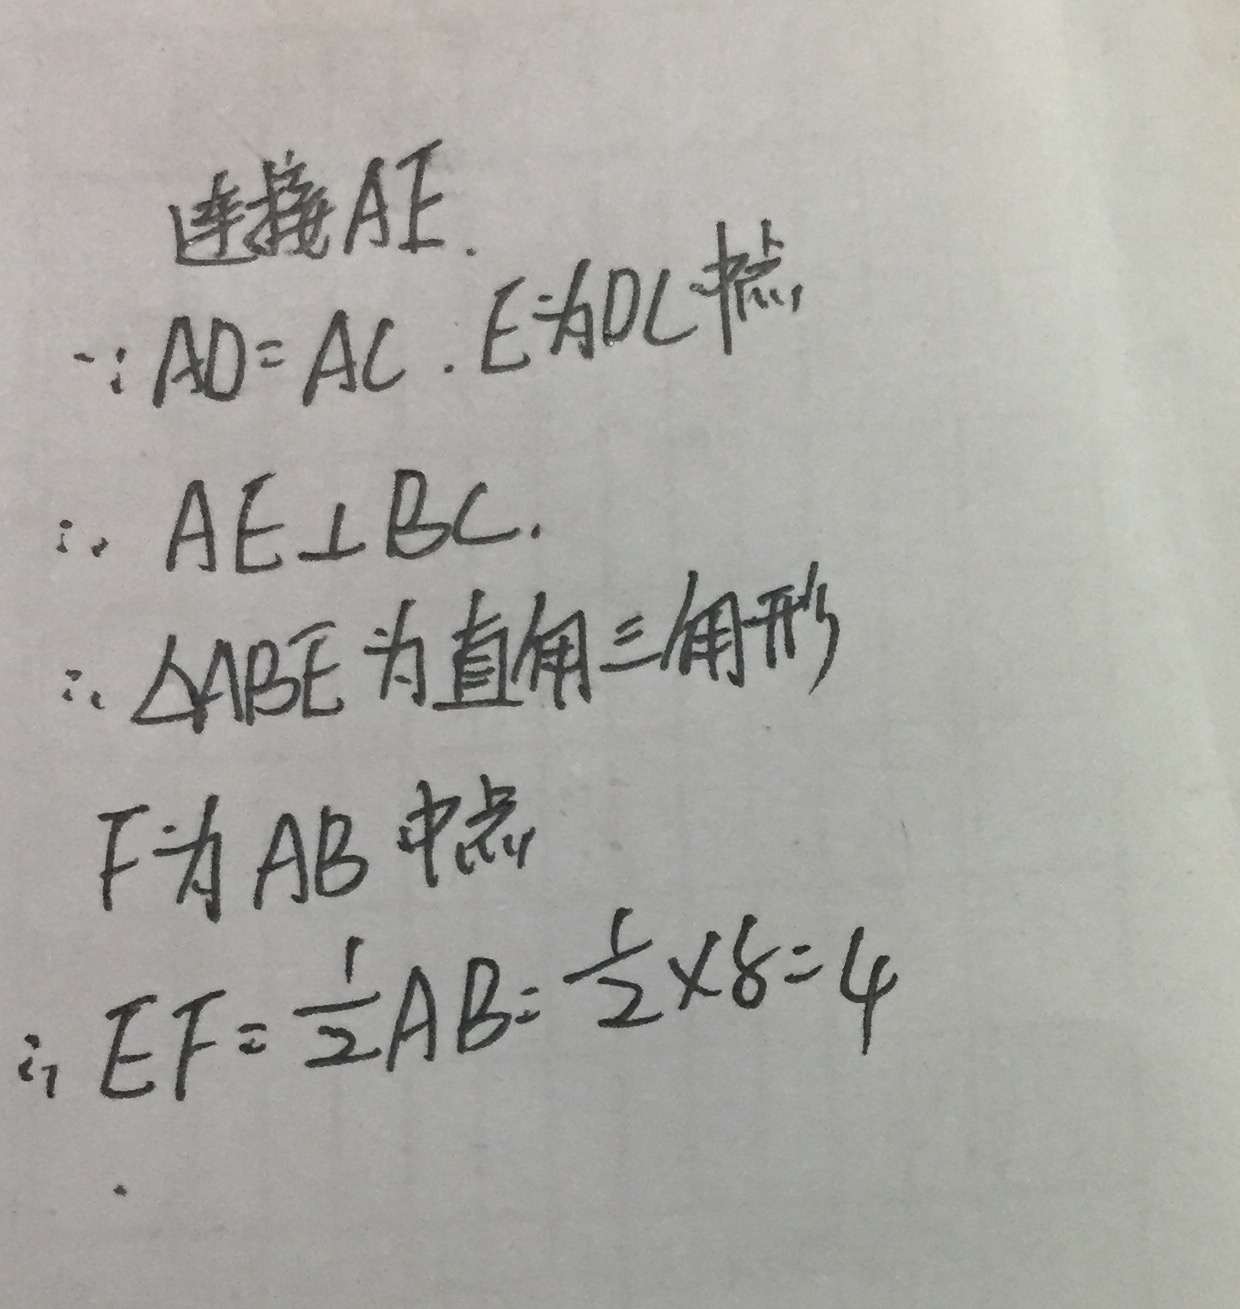 连接AE.
∵AD=AC.E为DC中点
∴AE⊥BC.
∴△ABE为直角三角形
F为AB中点
∴EF=1/2AB=1/2×8=4